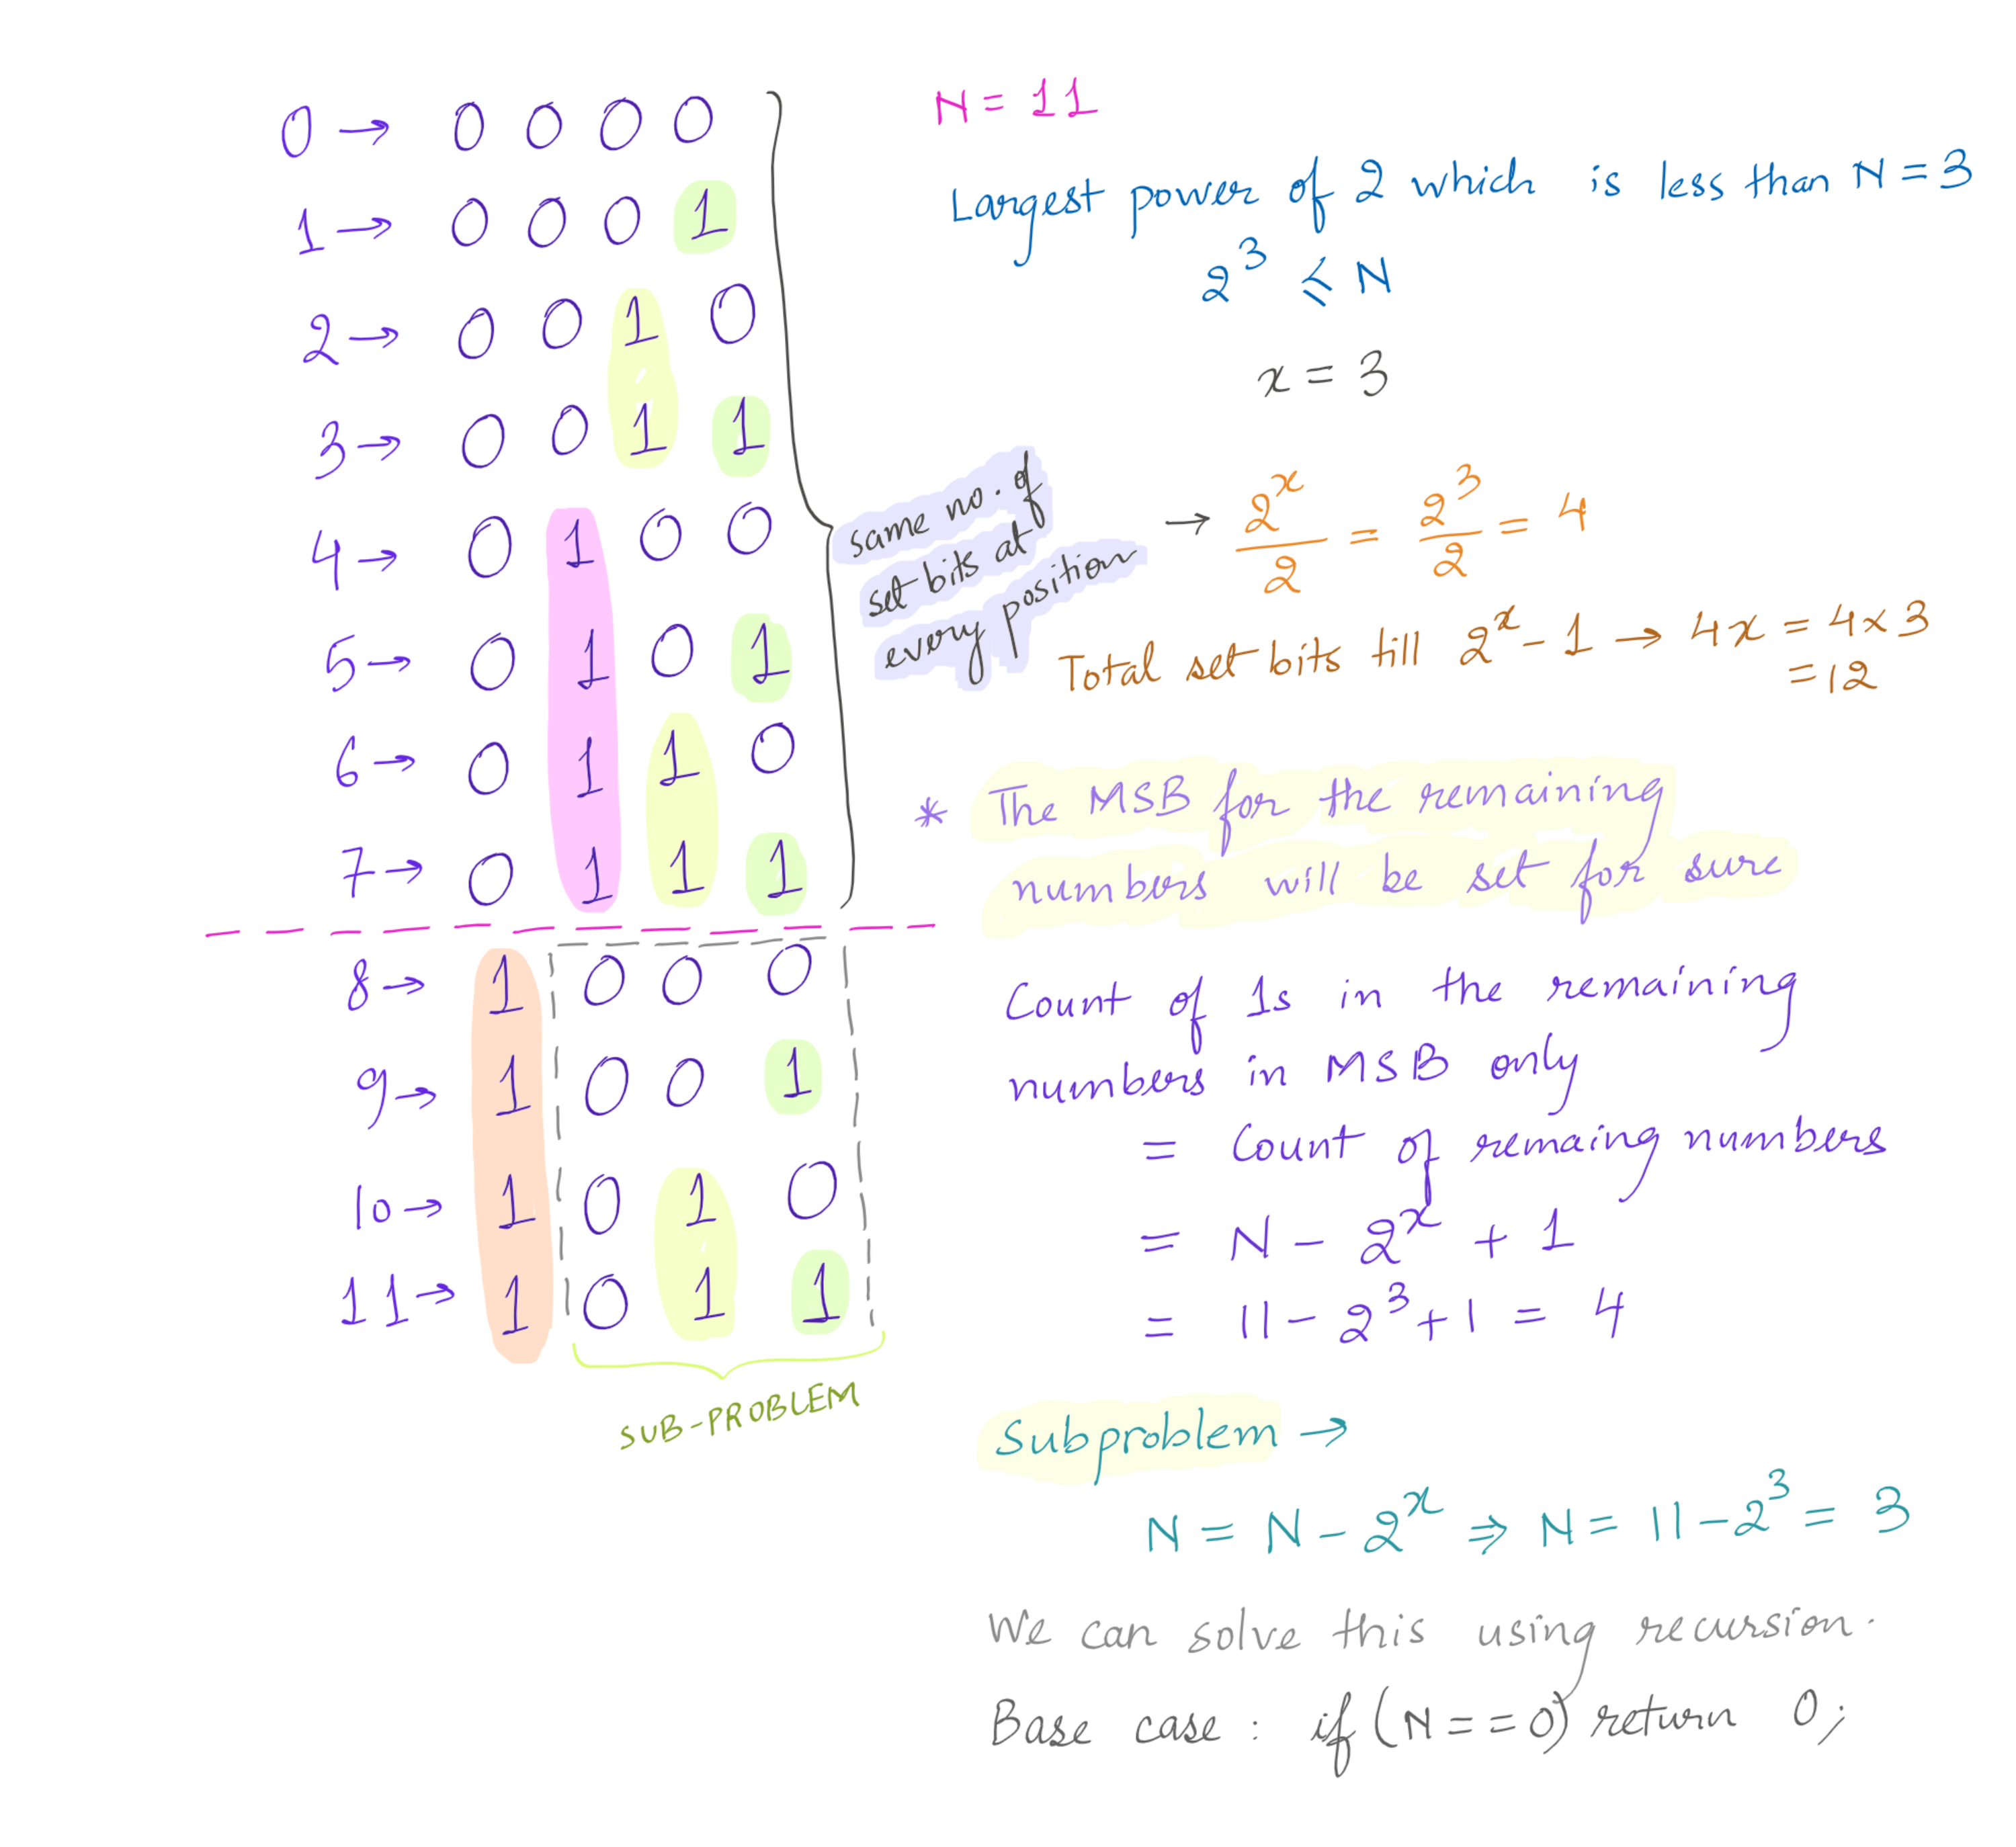 0 → 0 0 0 0
1 → 0 0 0 1
2 → 0 0 1 0
3 → 0 0 1 1
4 → 0 1 0 0
5 → 0 1 0 1
6 → 0 1 1 0
7 → 0 1 1 1
8 → 1 0 0 0
9 → 1 0 0 1
10 → 1 0 1 0
11 → 1 0 1 1
SUB-PROBLEM
same no. of
set bits at
every position
N = 11
Largest power of 2 which is less than N = 3
2³ ≤ N
x = 3
→ 2ˣ/2 = 2³/2 = 4
Total set bits till 2ˣ - 1 → 4x = 4 x 3
= 12
* The MSB for the remaining
numbers will be set for sure
Count of 1s in the remaining
numbers in MSB only
= Count of remaing numbers
= N - 2ˣ + 1
= 11 - 2³ + 1 = 4
Subproblem →
N = N - 2ˣ ⇒ N = 11 - 2³ = 3
We can solve this using recursion.
Base case : if (N == 0) return 0;